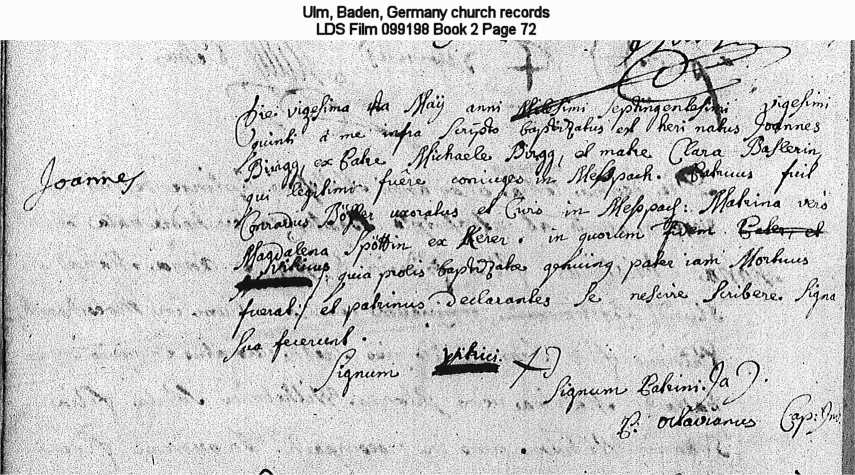 Ulm, Baden, Germany church records
LDS Film 099198 Book 2 Page 72
Die vigesima Maÿ anni Milesimi septingentesimi vigesimi
Quinti à me infra scripto baptizatus est heri natus Joannes
Birgg, ex Patre Michaele Birgg, et matre Clara Baslerin,
qui legitimi fuêre coniuges in Messpach. Patrinus fuit
Joannes
Conradus uxoratus et Civis in Messpach: Matrina verò
Magdalena Spöttin ex in quorum fidem Pater, et
quia prolis baptizatae pater iam Mortuus
fuerat :/ et patrinus declarantes se nescire scribere signa
sua fecerunt.
Signum
Signum Patrini
P. octavianus Cap: